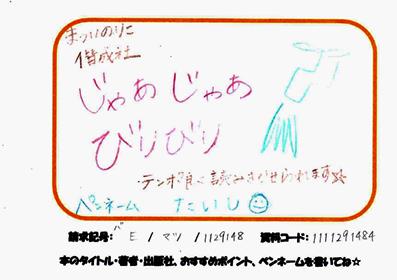 まついのりこ
偕成社
じゃあじゃあ
びりびり
・テンポ良く読みきかせられます☆
ペンネーム たいし
請求記号: E / マツ / 1129148 資料コード: 1111291484
本のタイトル・著者・出版社、おすすめポイント、ペンネームを書いてね☆